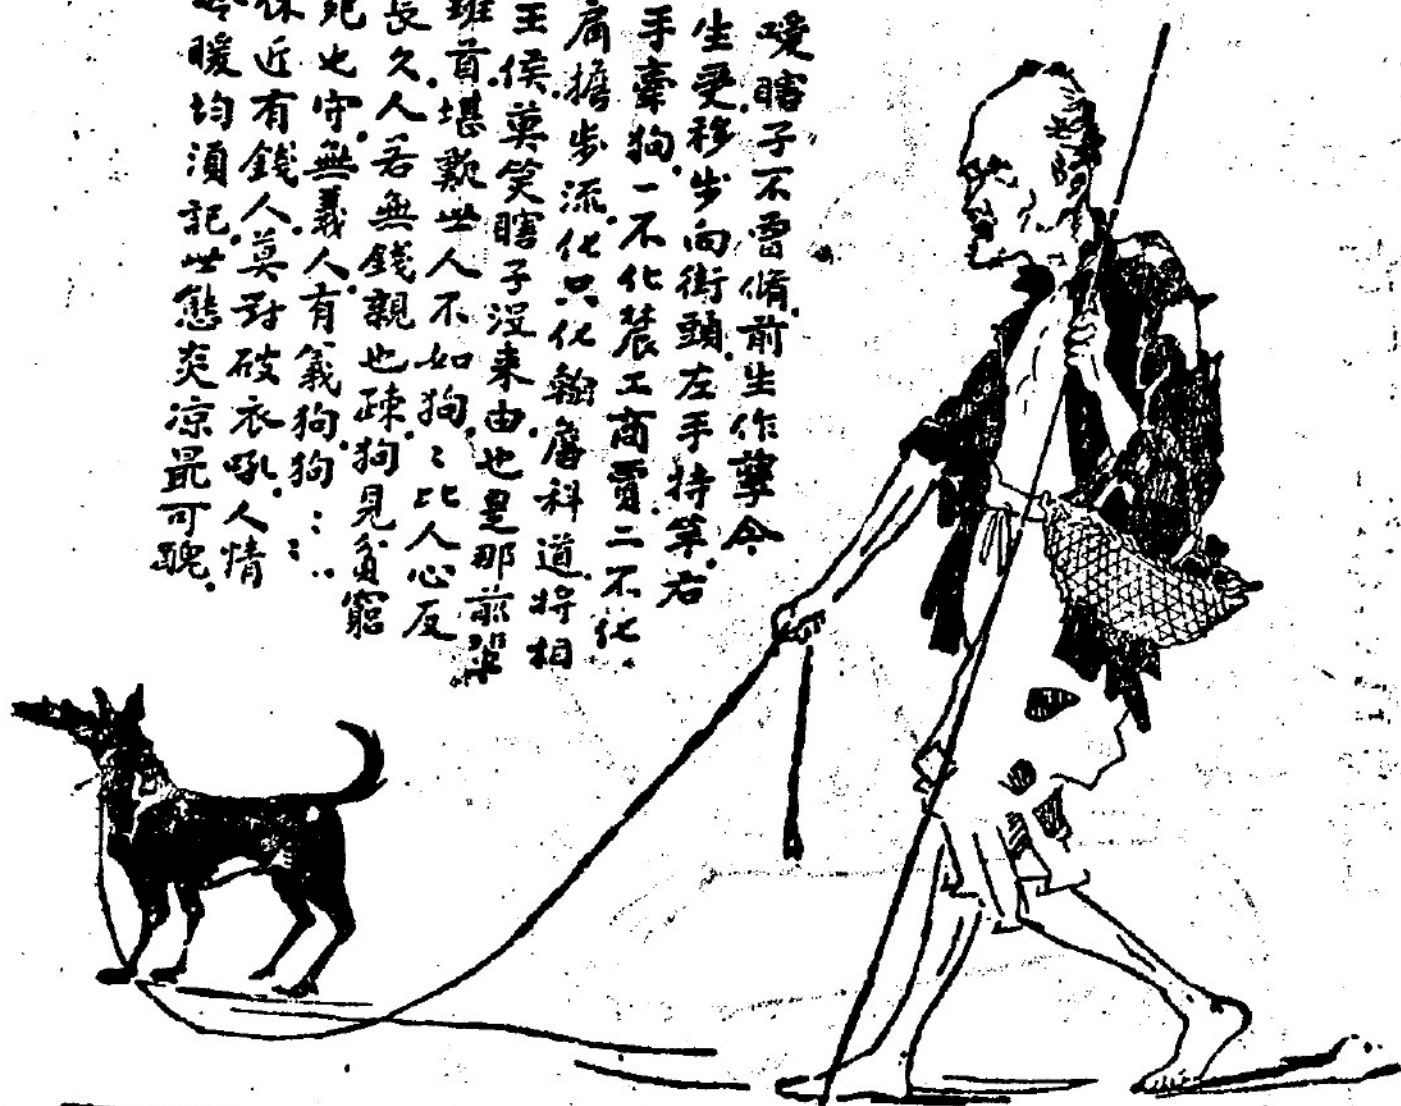 嘆瞎子不曾脩.前生作孽今
生受.移步向街頭.左手持竿.右
手牽狗.一不化農工商賈.二不化
肩擔步流.化只化翰詹科道.將相
王侯.莫笑瞎子沒來由.也是那前輩
班首.堪歎世人不如狗.〻比人心反
長久.人若無錢親也疎.狗見貧窮
死也守.無義人.有義狗.狗〻〻
休近有錢人.莫對破衣吼.人情
冷暖均須記.世態炎凉最可醜.